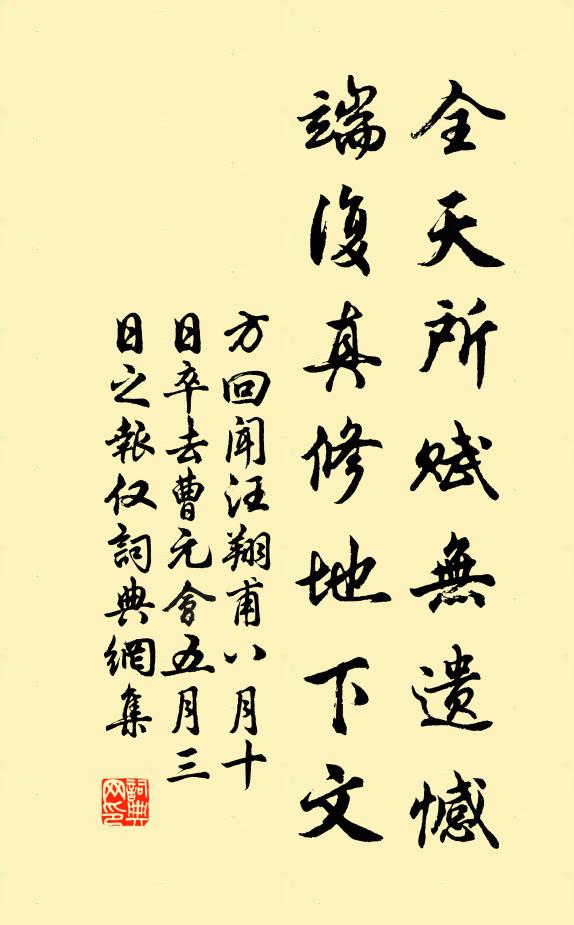 全天所赋無遗憾
端復真修地下文
方回闻汪翔甫八月十
日卒去曹元會五月三
日之報仅詞典網集
詞典
网印